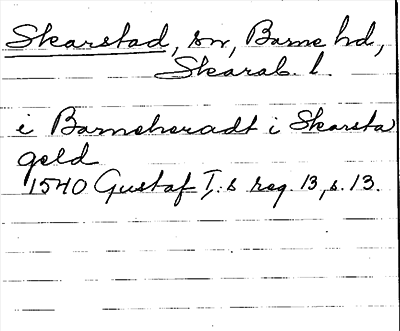 Skarstad, sn, Barne hd,
Skarab. l.
i Barneheradt i Skarsta
geld
1540 Gustaf I:s reg. 13, s. 13.